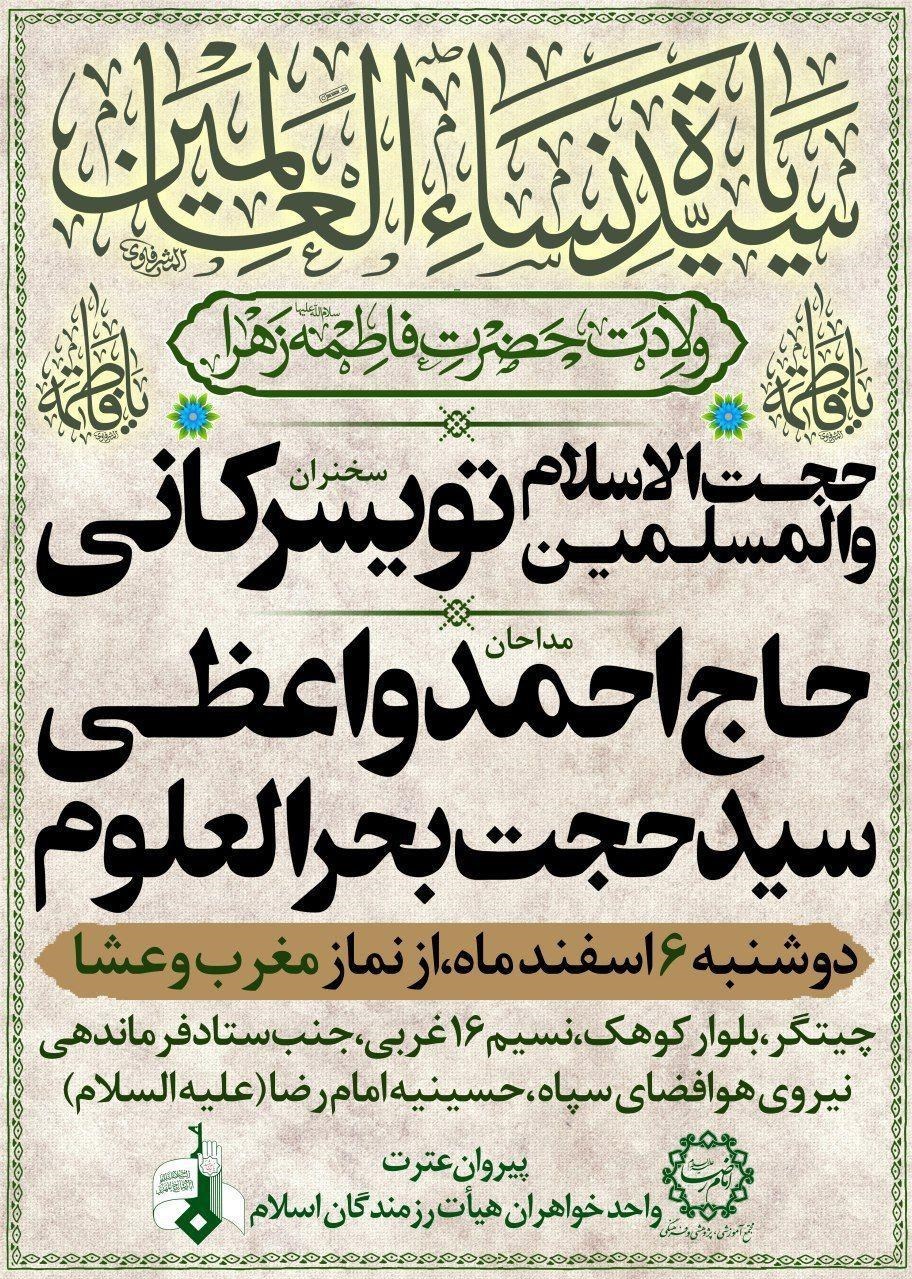 یا سیدة نساء العالمین
المشرفاوی
ولادت حضرت فاطمه زهرا
سلام الله علیها
یا فاطمة
یا فاطمة
حجت الاسلام
والمسلمین
سخنران
تویسرکانی
مداحان
حاج احمد واعظی
سید حجت بحرالعلوم
دوشنبه ۶ اسفند ماه، از نماز مغرب و عشا
چیتگر، بلوار کوهک، نسیم ۱۶ غربی، جنب ستاد فرماندهی
نیروی هوافضای سپاه، حسینیه امام رضا (علیه السلام)
پیروان عترت
واحد خواهران هیأت رزمندگان اسلام
امام رضا
مجتمع آموزشی، پژوهشی و فرهنگی